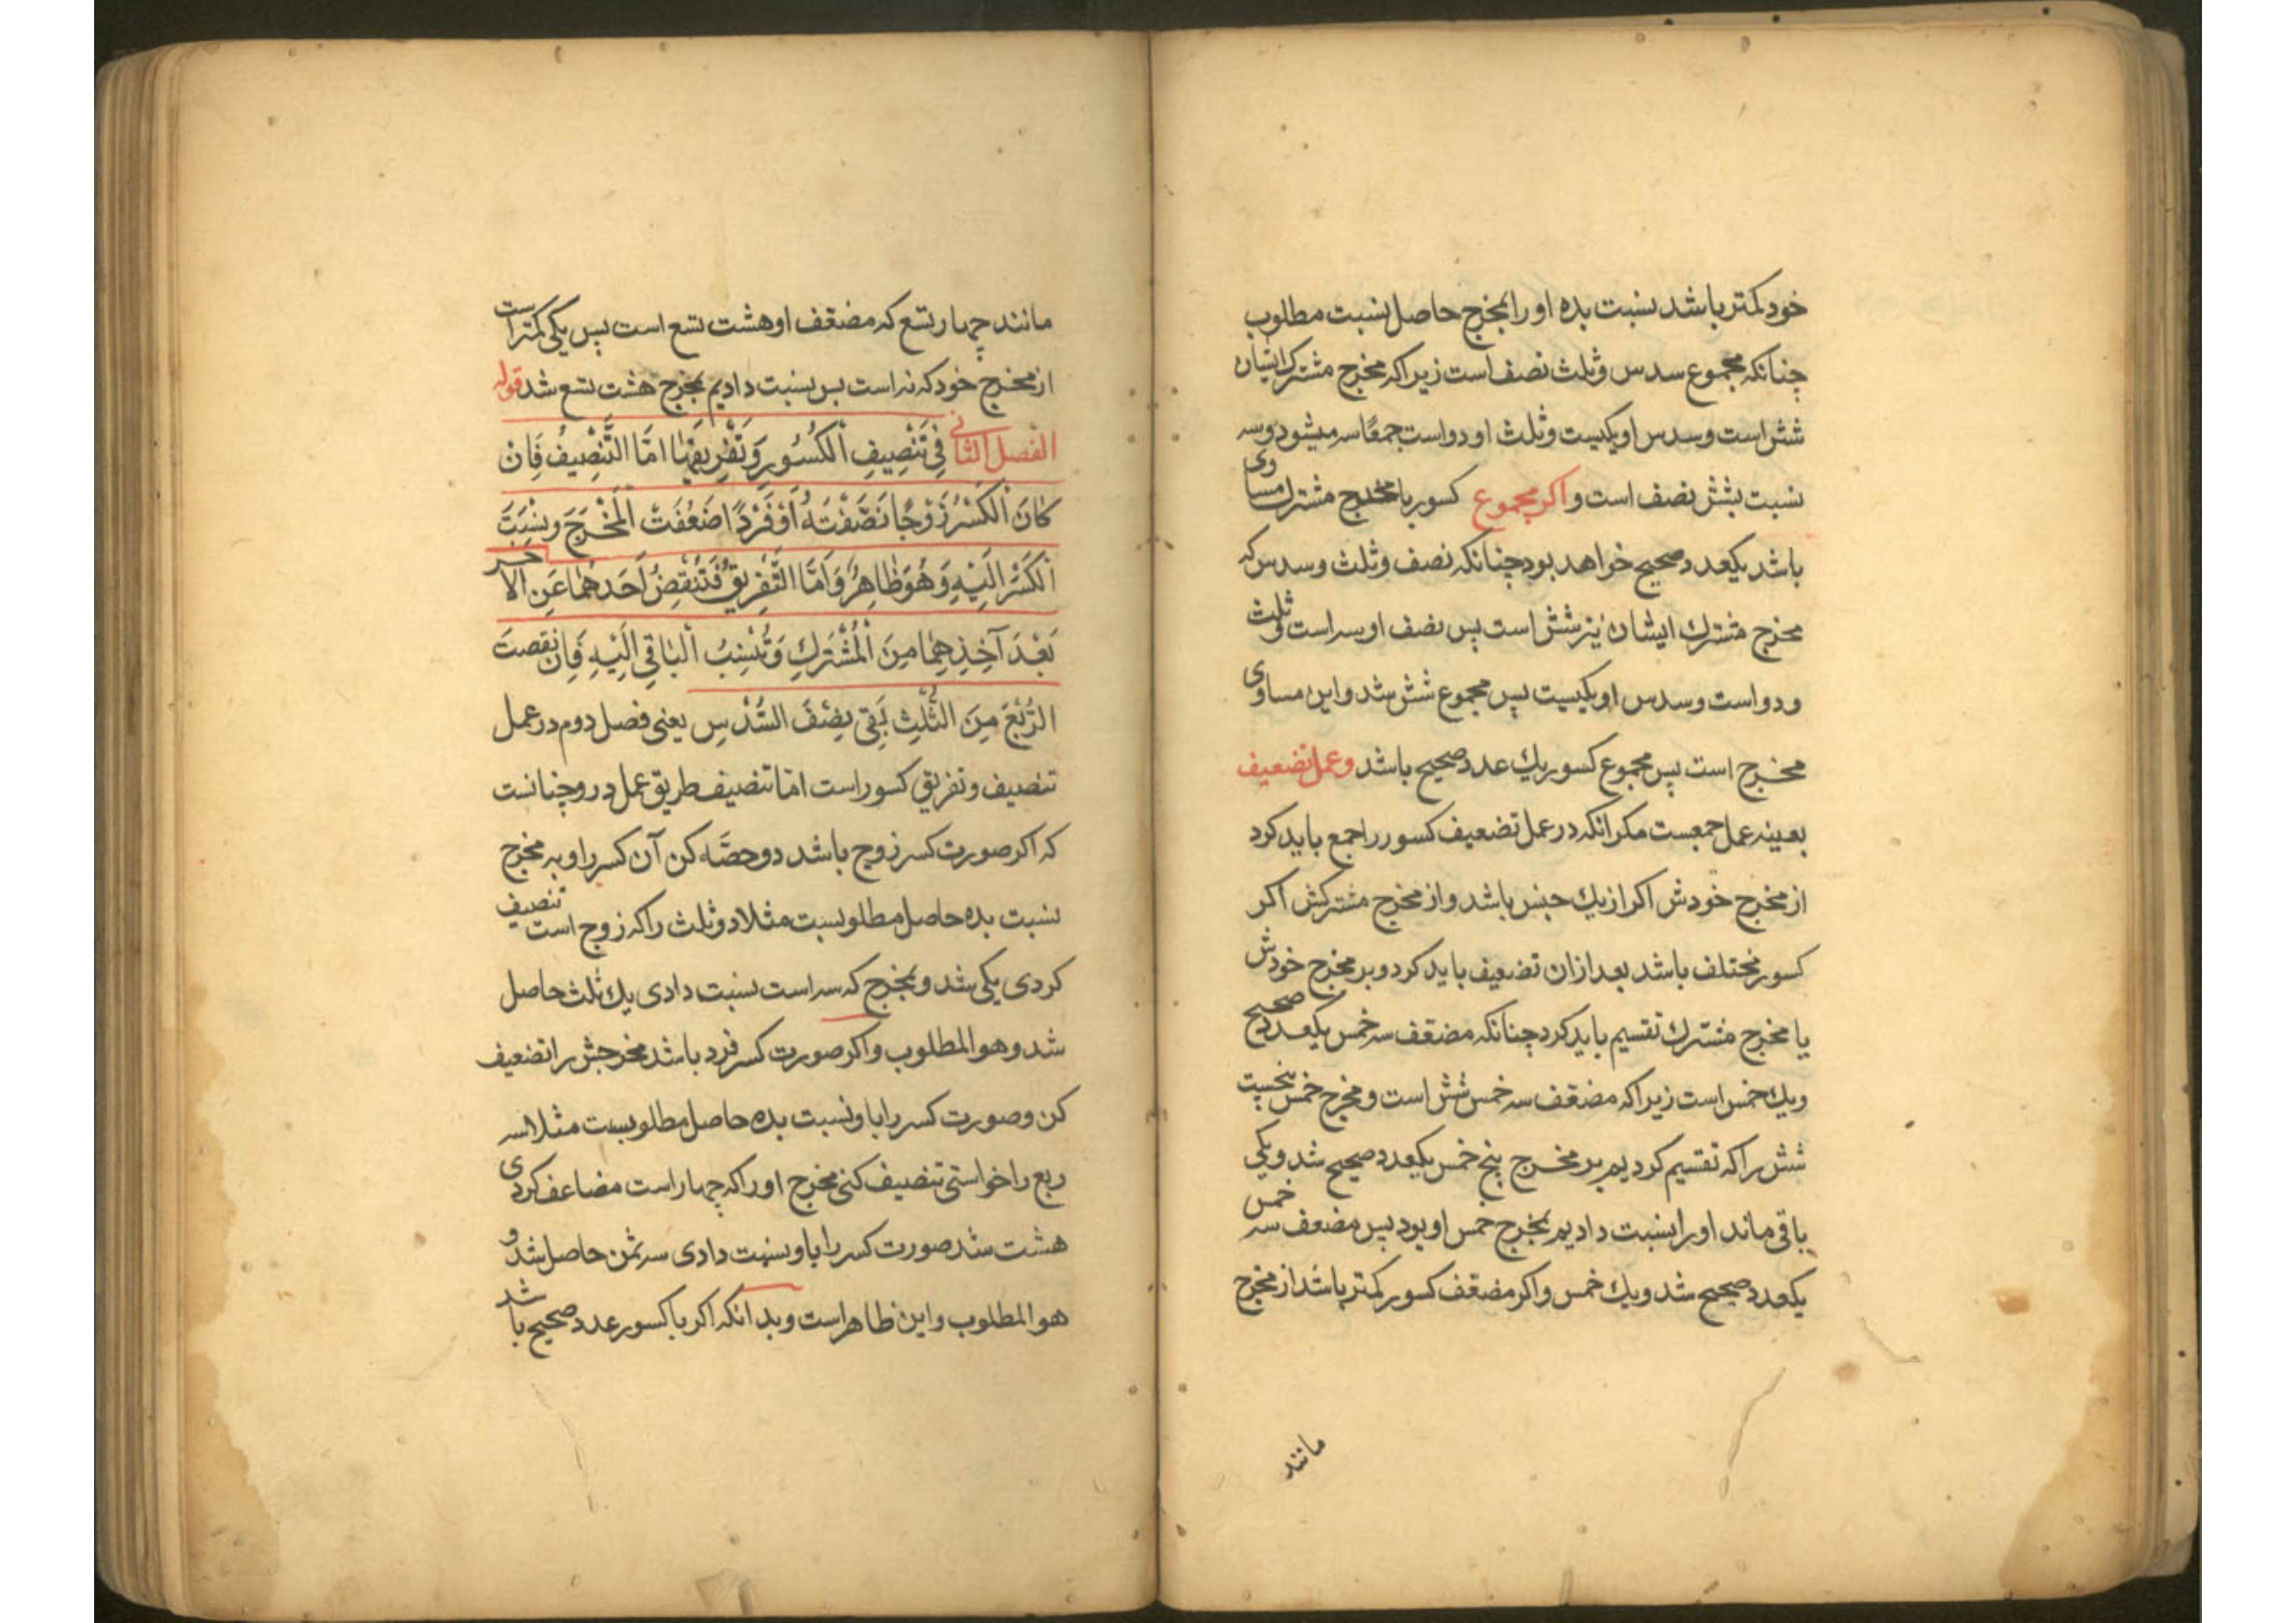 خود کمتر باشد نسبت بده او را بمخرج حاصل نسبت مطلوب
چنانکه مجموع سدس و ثلث نصف است زیرا که مخرج مشترک ایشان
شش است و سدس او یکیست و ثلث او دو است جمعًا سه میشود و سه
نسبت بشش نصف است و اکر مجموع کسور با مخرج مشترك مساوی
باشد یکعدد صحیح خواهد بود چنانکه نصف و ثلث و سدس که
مخرج مشترك ایشان نیز شش است پس نصف او سه است و ثلث
و دو است و سدس او یکیست پس مجموع شش شد و این مساوی
مخرج است پس مجموع کسور یك عدد صحیح باشد و عمل تضعیف
بعینه عمل جمعست مکر انکه در عمل تضعیف کسور را جمع باید کرد
از مخرج خودش اکر از یك جنس باشد و از مخرج مشترکش اکر
کسور مختلف باشد بعد از ان تضعیف باید کرد و بر مخرج خودش
یا مخرج مشترك تقسیم باید کرد چنانکه مضعّف سه خمس یکعدد صحیح
و یك خمس است زیرا که مضعّف سه خمس شش است و مخرج خمس پنجست
شش را که تقسیم کردیم بر مخرج پنج خمس یکعدد صحیح شد و یکی
باقی ماند او را نسبت دادیم بمخرج خمس او بود پس مضعف سه خمس
یکعدد صحیح شد و یك خمس و اکر مضعّف کسور کمتر باشد از مخرج
مانند
مانند چهار تسع که مضعّف او هشت تسع است پس یکی کمتر است
از مخرج خود که نه است پس نسبت دادیم بمخرج هشت تسع شد قوله
الفصل الثانی فِي تَنْصِيفِ الْكُسُورِ وَتَفْرِيقِهَا اَمَّا التَّنْصِيفُ فَاِنْ
كَانَ الْكَسْرُ زَوْجًا نَصَّفْتَهُ اَوْ فَرْدًا ضَعَّفَتْ الْمَخْرَجَ وَنَسَبْتَ
الْكَسْرَ اِلَيْهِ وَهُوَ ظَاهِرٌ وَاَمَّا التَّفْرِيقُ فَتَنْقُصُ اَحَدَهُمَا عَنِ الاخر
بَعْدَ آخِذِهِمَا مِنَ الْمُشْتَرَكِ وَتُنْسِبُ الْبَاقِي اِلَيْهِ فَاِنْ نَقصتَ
الرُّبْعَ مِنَ الثُّلُثِ بَقِيَ نِصْفَ السُّدْسِ یعنی فصل دوم در عمل
تنصیف و تفریق کسور است امّا تنصیف طریق عمل در و چنانست
که اکر صورت کسر زوج باشد دو حصّه کن آن کسر را و به مخرج
نسبت بده حاصل مطلوبست مثلا دو ثلث را که زوج است تنصیف
کردی یکی شد و بمخرج که سه است نسبت دادی یك ثلث حاصل
شد و هو المطلوب و اکر صورت کسر فرد باشد مخرجش را تضعیف
کن و صورت کسر را با و نسبت بده حاصل مطلوبست مثلا سه
ربع را خواستی تنصیف کنی مخرج او را که چهار است مضاعف کردی
هشت شد صورت کسر را باو نسبت دادی سه ثمن حاصل شد و
هو المطلوب و این ظاهر است و بدانکه اکر با کسور عدد صحیح باشد